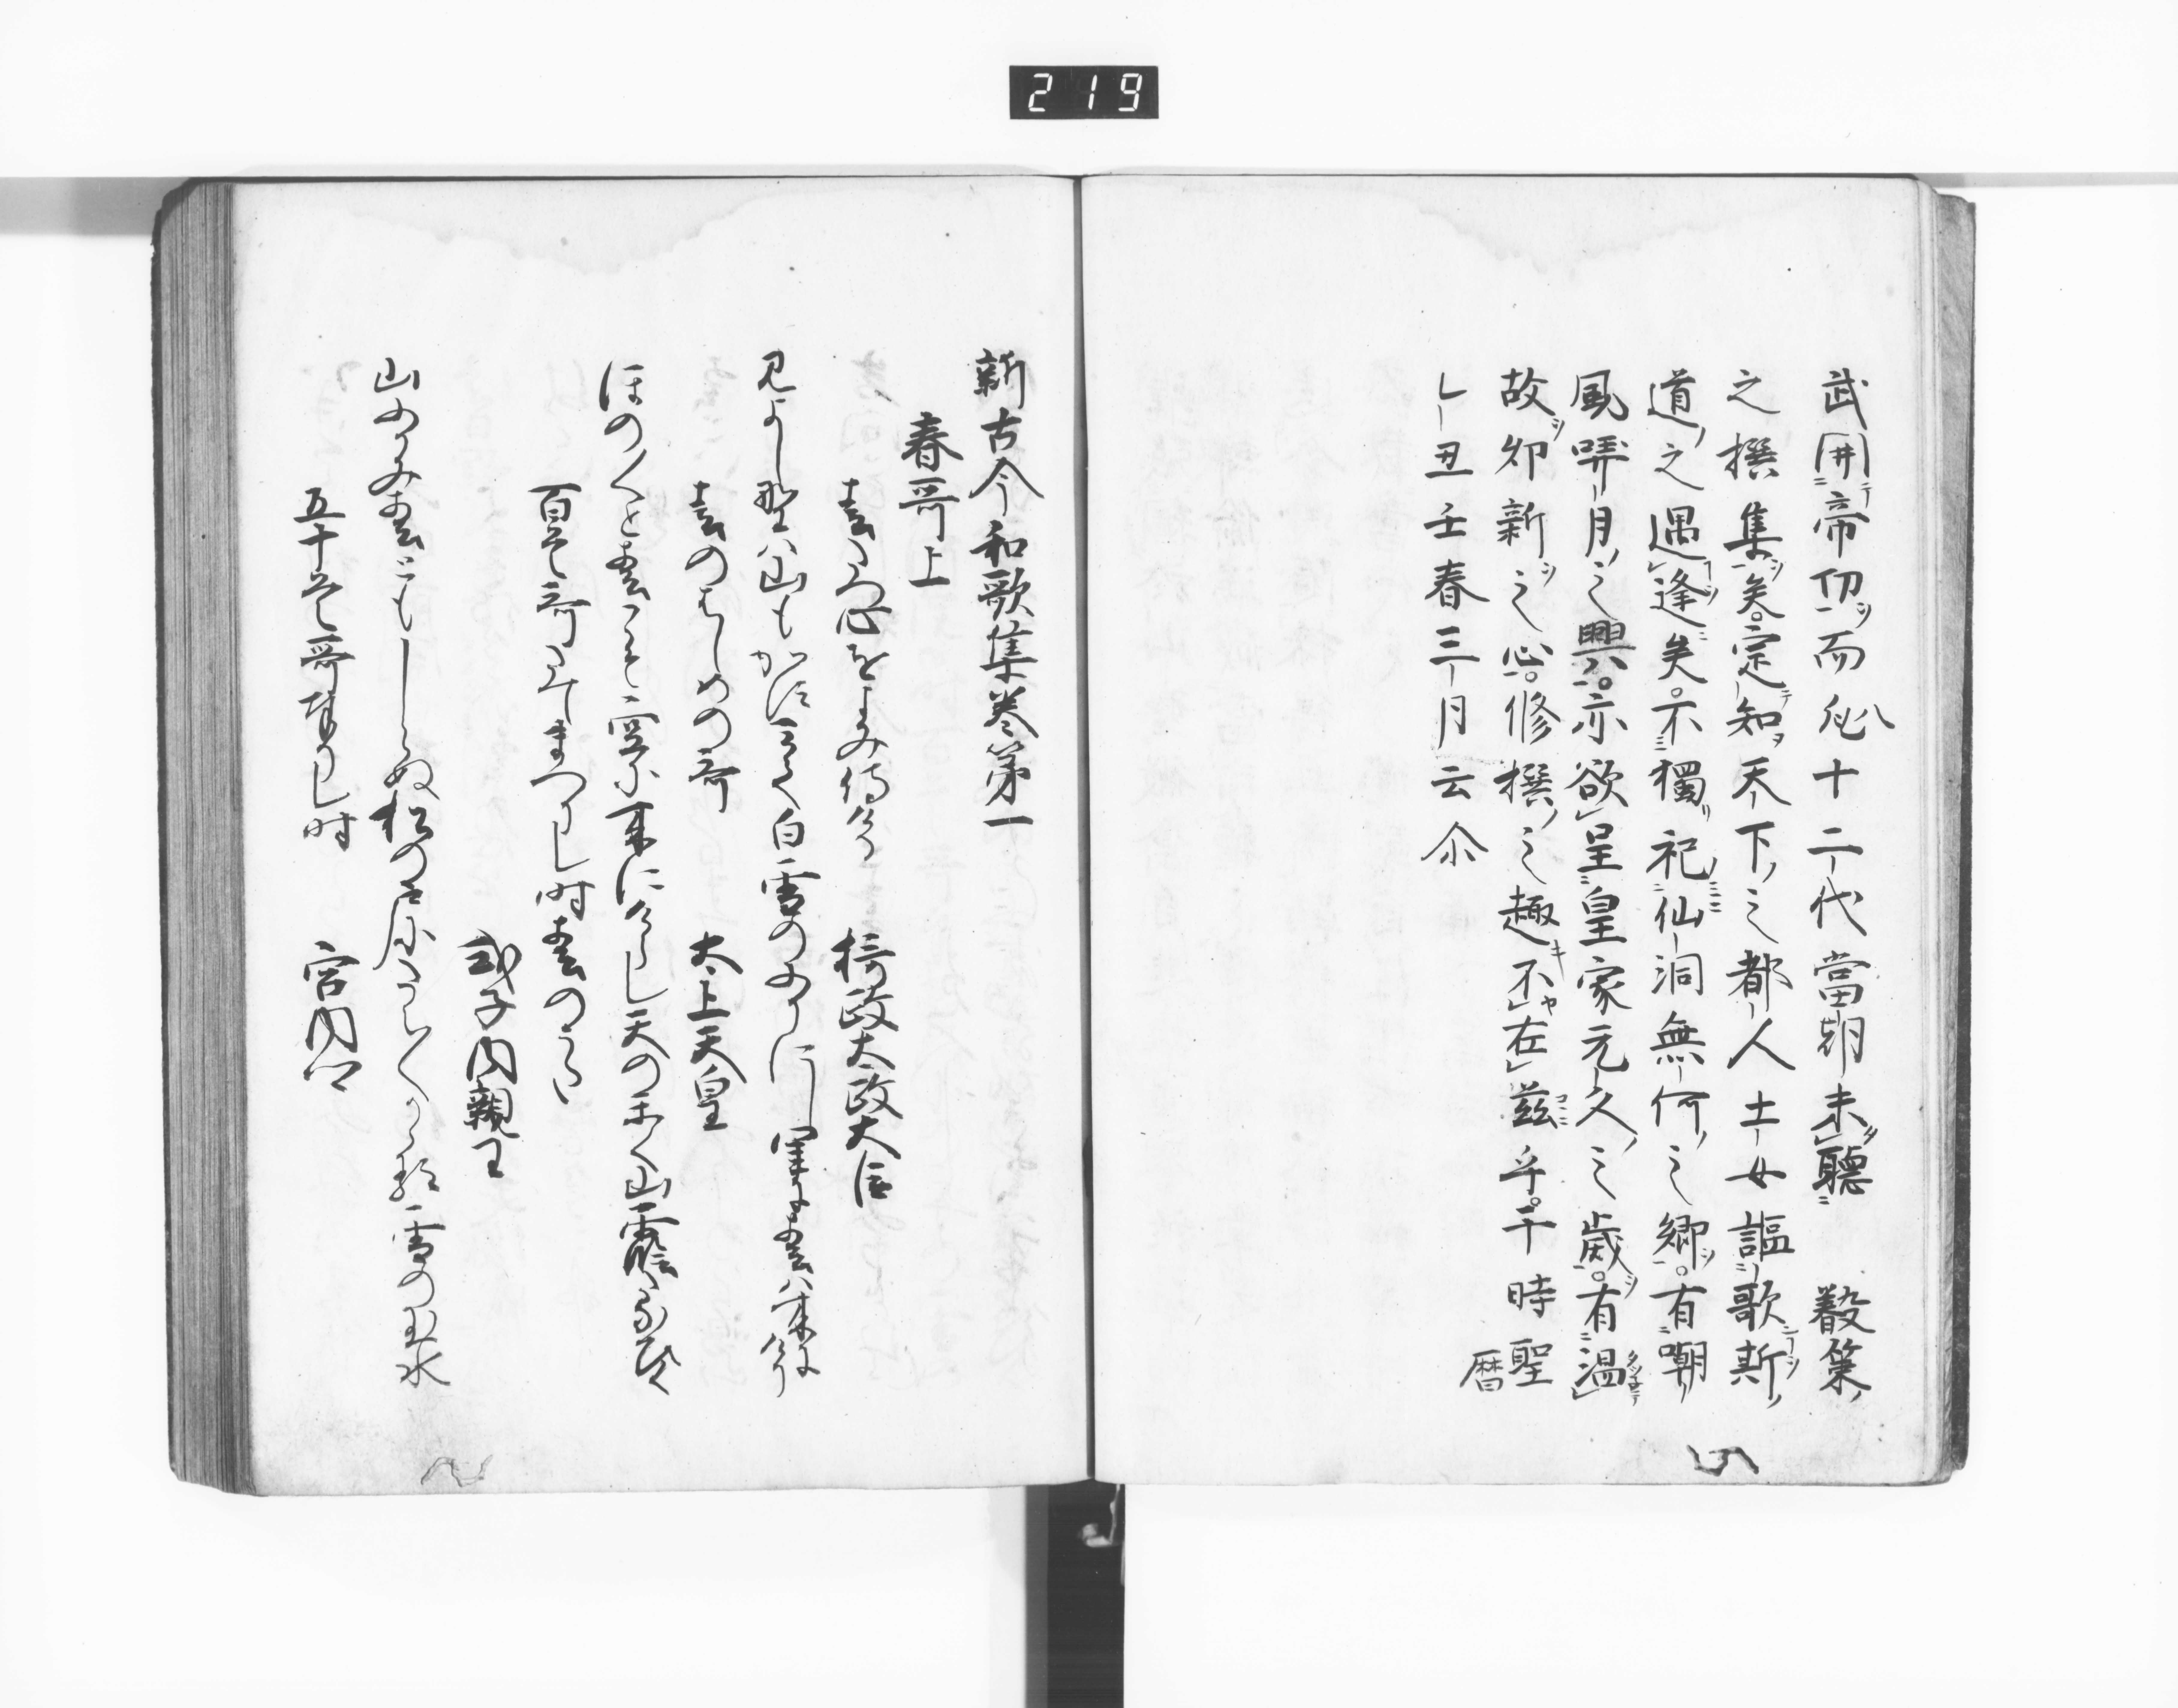 219
武開帝功而八十二代當朝未聽 叡策
之撰集矣定知天下之都人士女謳歌斯
道之遇逢矣不獨記仙洞無何之郷有嘲
風哢月之興亦欲呈皇家元久之歳有温
故知新之心修撰之趣不在茲乎于時聖暦
乙丑王春三月云尒
新古今和歌集巻第一
春哥上
春たつ心をよみ侍ける 摂政太政大臣
みよし野は山もかすみて白雪のふりにし里に春は来にけり
春のはしめの哥 太上天皇
ほの〱と春こそ空に来にけらし天のかく山霞たなひく
百首哥たてまつりし時春のうた
式子内親王
山ふかみ春ともしらぬ松の戸にたえ〱かゝる雪の玉水
五十首哥奉りし時 宮内卿